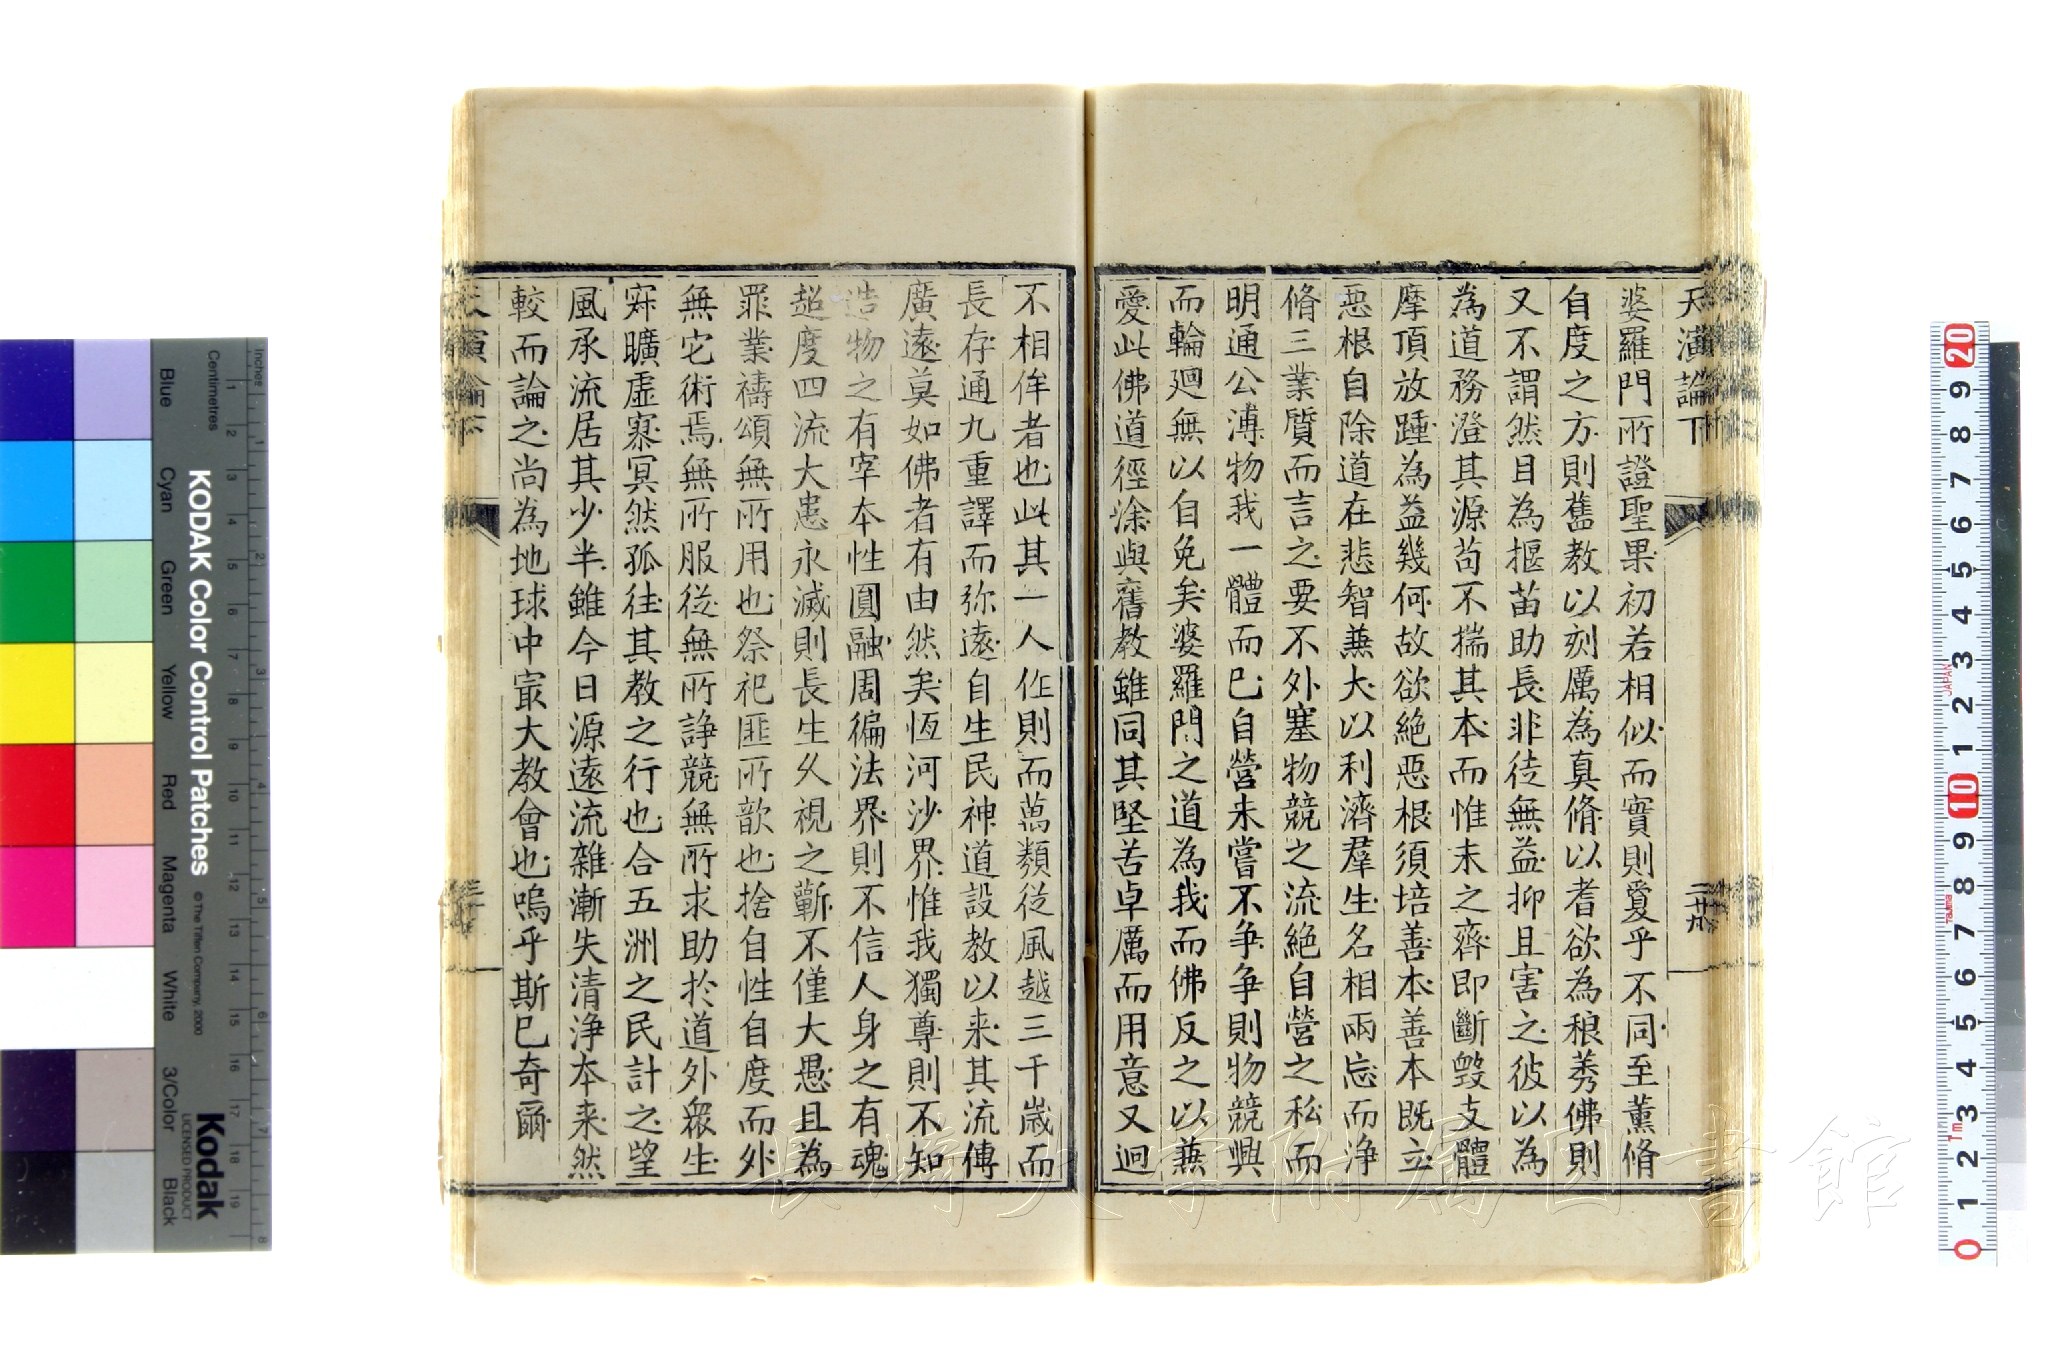 天演論下
二十九
婆羅門所證聖果初若相似而實則夐乎不同至薰脩
自度之方則舊教以刻厲為真脩以耆欲為稂莠佛則
又不謂然目為揠苗助長非徒無益抑且害之彼以為
為道務澄其源苟不揣其本而惟末之齊即斷毀支體
摩頂放踵為益幾何故欲絕惡根須培善本善本既立
惡根自除道在悲智兼大以利濟羣生名相兩忘而淨
脩三業質而言之要不外塞物競之流絕自營之私而
明通公溥物我一體而已自營未嘗不争争則物競興
而輪廻無以自免矣婆羅門之道為我而佛反之以兼
愛此佛道徑涂與舊教雖同其堅苦卓厲而用意又迥
不相侔者也此其一人作則而萬類從風越三千歲而
長存通九重譯而弥遠自生民神道設教以来其流傳
廣遠莫如佛者有由然矣恆河沙界惟我獨尊則不知
造物之有宰本性圓融周徧法界則不信人身之有魂
超度四流大患永滅則長生久視之蘄不僅大愚且為
罪業禱頌無所用也祭祀匪所歆也捨自性自度而外
無它術焉無所服從無所諍競無所求助於道外衆生
寂曠虛寥冥然孤往其教之行也合五洲之民計之望
風承流居其少半雖今日源遠流雜漸失清淨本来然
較而論之尚為地球中㝡大教會也嗚乎斯已奇爾
天演論下
三十
長崎大学附属図書館
KODAK Color Control Patches
© The Tiffen Company, 2000
Kodak
LICENSED PRODUCT
Inches
Centimetres
Blue
Cyan
Green
Yellow
Red
Magenta
White
3/Color
Black
JAPAN